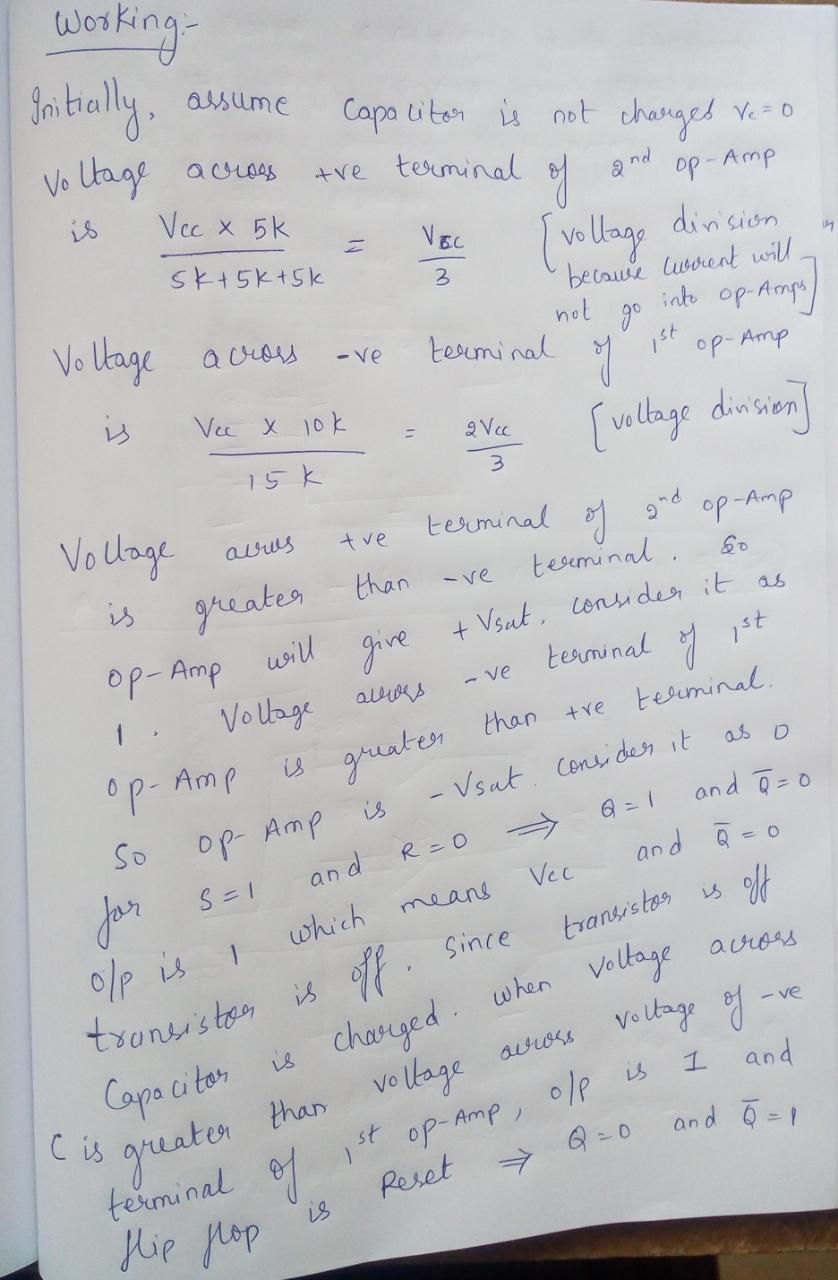 Working:-
Initially, assume Capacitor is not charged Vc = 0
Voltage across +ve terminal of 2nd op-Amp
is Vcc x 5k / 5k+5k+5k = Vcc / 3 [voltage division
because current will
not go into op-Amps]
Voltage across -ve terminal of 1st op-Amp
is Vcc x 10k / 15k = 2Vcc / 3 [voltage division]
Voltage across +ve terminal of 2nd op-Amp
is greater than -ve terminal. So
op-Amp will give + Vsat, consider it as
1. Voltage across -ve terminal of 1st
op-Amp is greater than +ve terminal.
So op-Amp is - Vsat. consider it as 0
for S=1 and R=0 ⇒ Q=1 and Q̅=0
o/p is 1 which means Vcc and Q̅=0
transistor is off. Since transistor is off
Capacitor is charged. When voltage across
C is greater than voltage across voltage of -ve
terminal of 1st op-Amp, o/p is 1 and
flip flop is Reset ⇒ Q=0 and Q̅=1